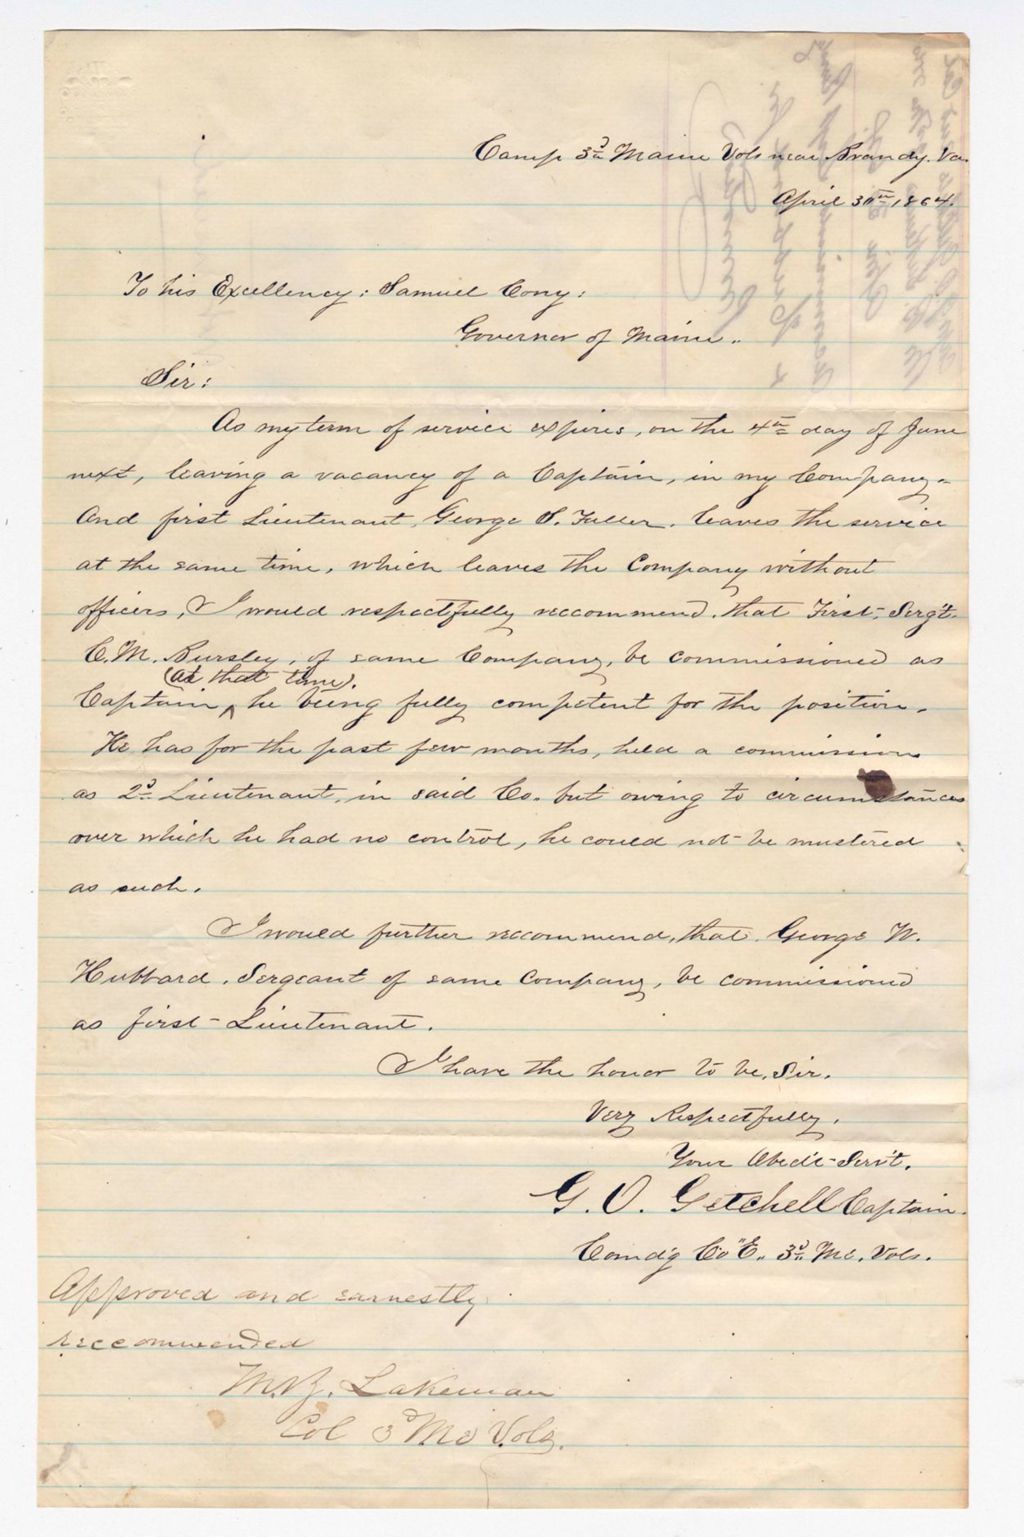 Camp 3d Maine Vols near Brandy. Va.
April 30th, 1864.
To his Excellency: Samuel Cony:
Governor of Maine..
Sir:
As my term of service expires, on the 4th day of June
next, leaving a vacancy of a Captain, in my Company.
And first Lieutenant, George S. Fuller. leaves the service
at the same time, which leaves the Company without
officers, I would respectfully reccommend. that First-Serg't.
C. M. Bursley, of same Company, be commissioned as
(at that time).
Captain ^ he being fully competent for the position.
He has for the past few months, held a commission
as 2d Lieutenant, in said Co. but owing to circumstances
over which he had no control, he could not be mustered
as such.
I would further reccommend, that George W.
Hubbard. Sergeant of same Company, be commissioned
as first-Lieutenant.
I have the honor to be, Sir.
Very Respectfully,
Your Obed't-Serv't.
G. O. Getchell Captain.
Comd'g Co "E" 3d Me. Vols.
Approved and earnestly
reccommended
M. B. Lakeman
Col 3d Me Vols.